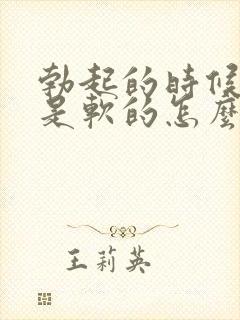 勃起的時候
是軟的怎麼
王莉英